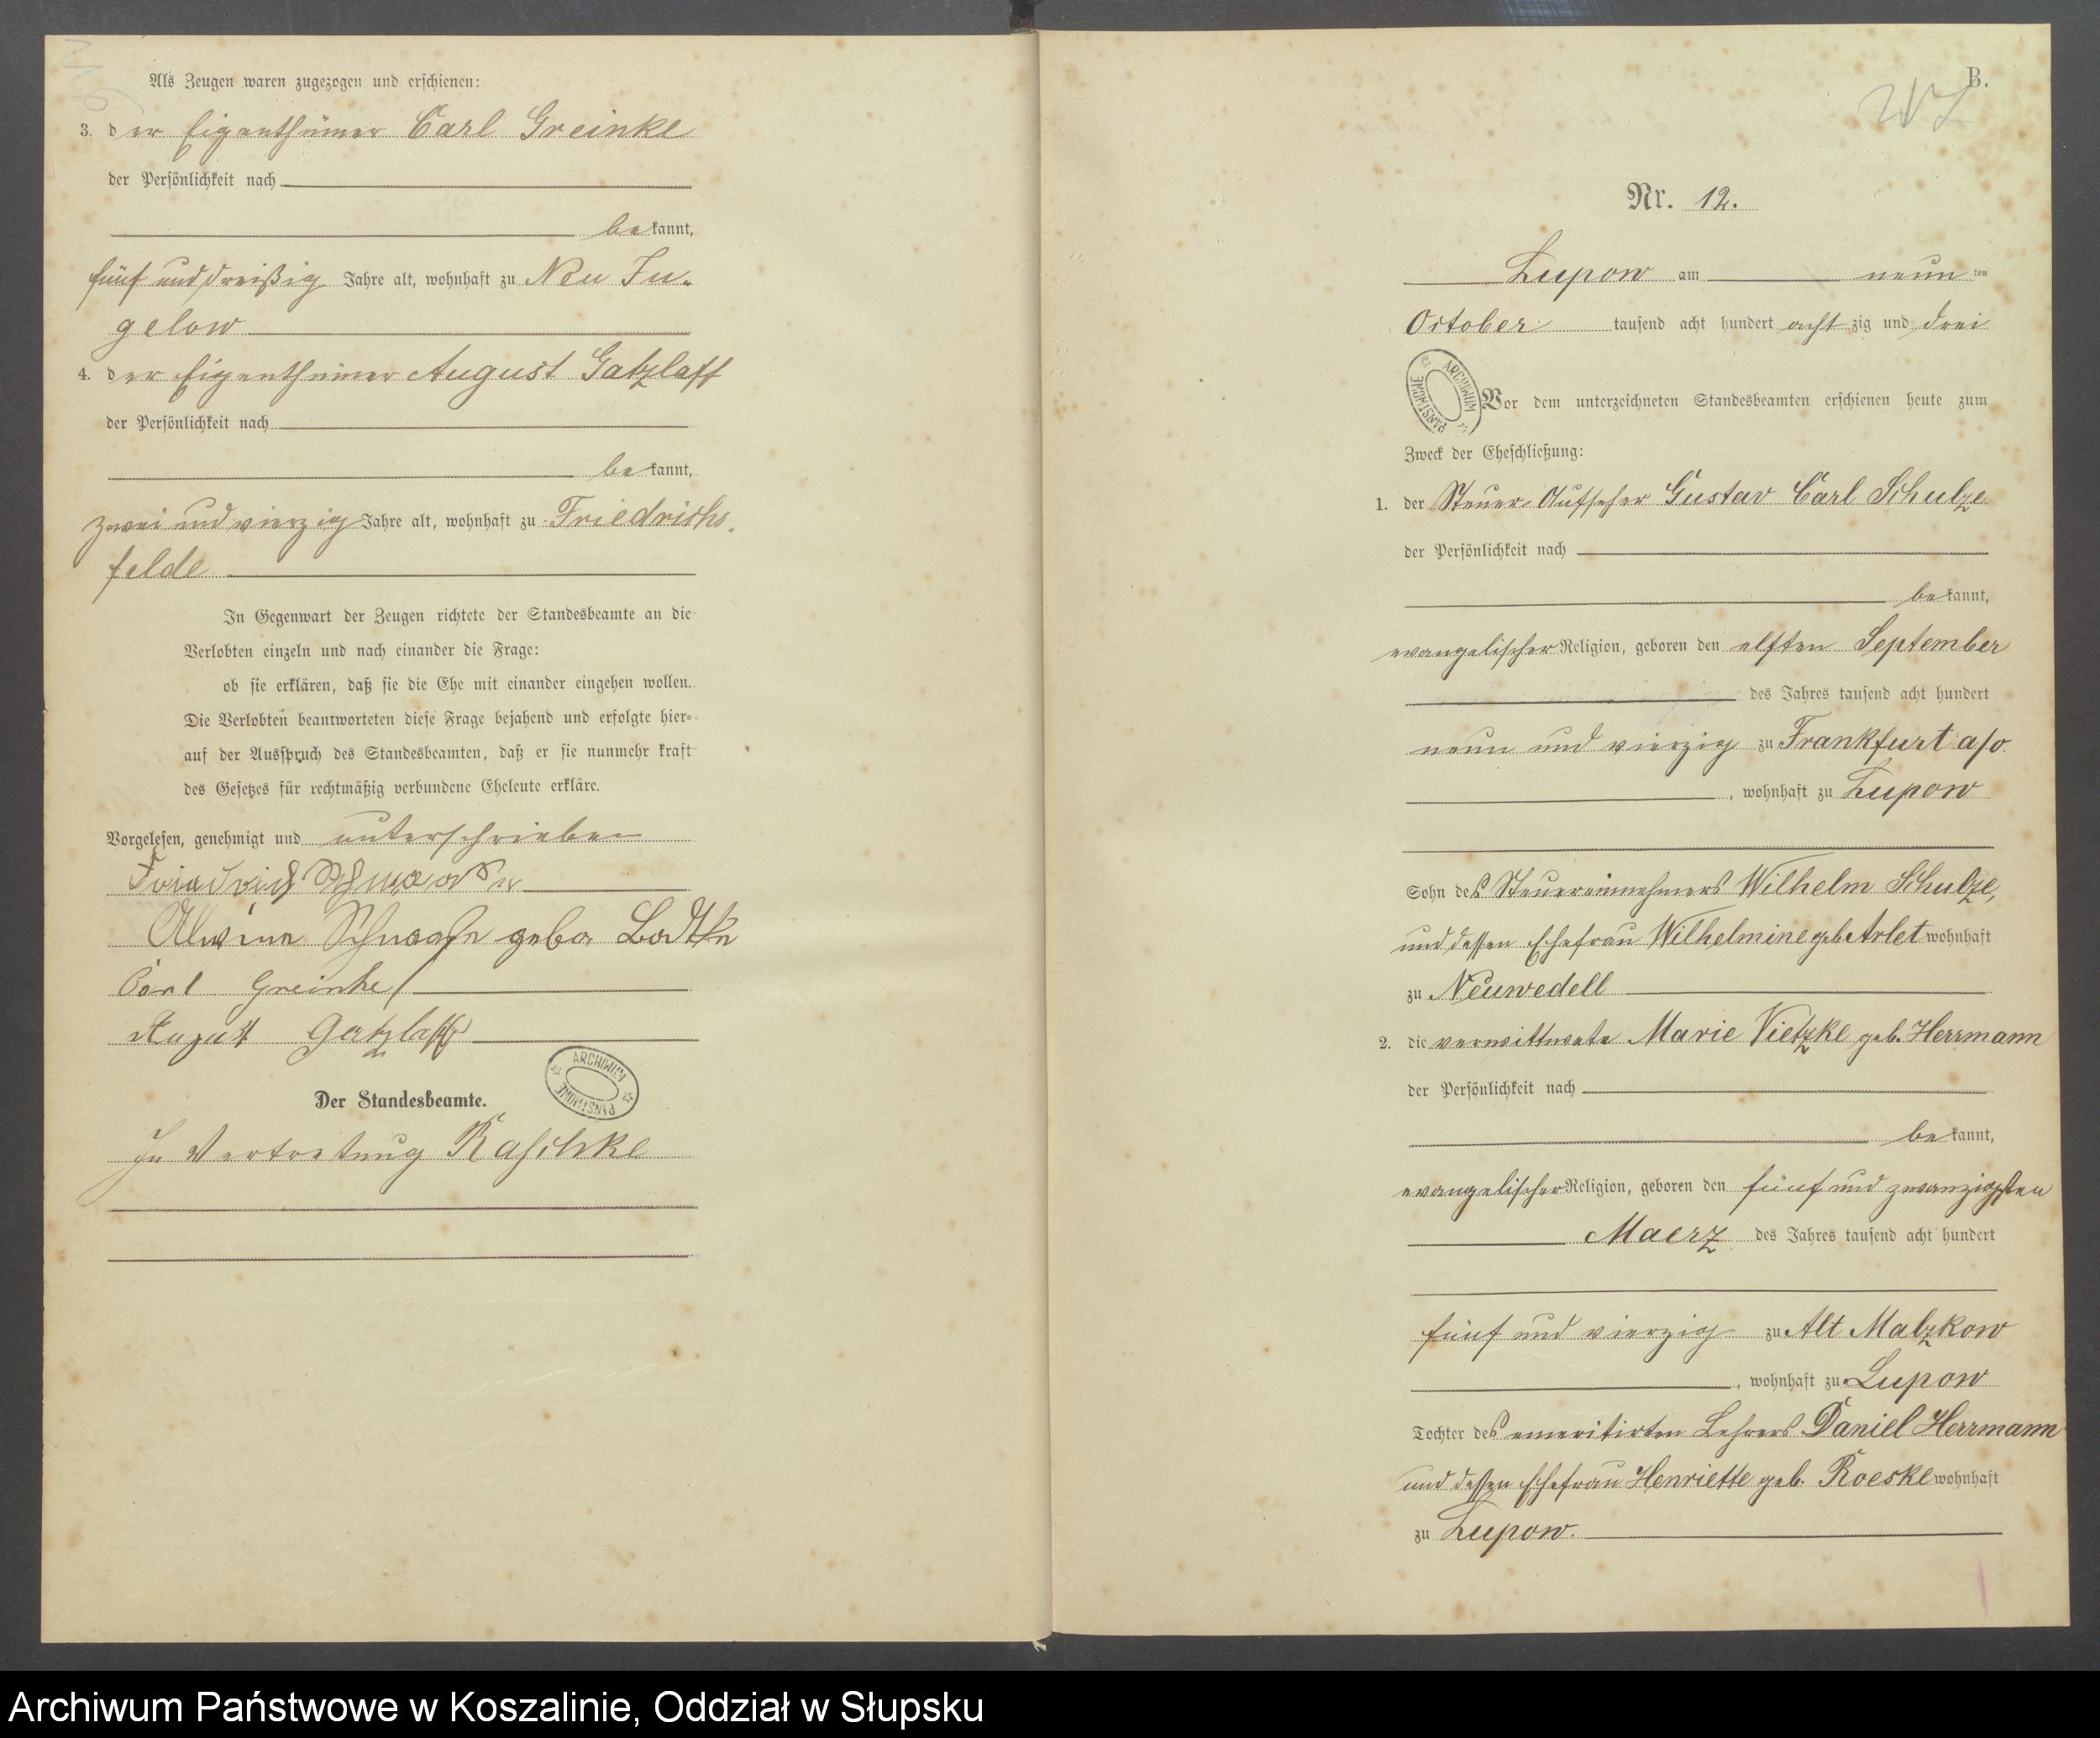 Als Zeugen waren zugezogen und erschienen:
3. der Eigenthümer Carl Greinke
der Persönlichkeit nach
bekannt,
fünf und dreißig Jahre alt, wohnhaft zu Neu Ju-
gelow
4. der Eigenthümer August Gatzlaff
der Persönlichkeit nach
bekannt,
zwei und vierzig Jahre alt, wohnhaft zu Friedrichs-
felde
In Gegenwart der Zeugen richtete der Standesbeamte an die
Verlobten einzeln und nach einander die Frage:
ob sie erklären, daß sie die Ehe mit einander eingehen wollen.
Die Verlobten beantworteten diese Frage bejahend und erfolgte hier-
auf der Ausspruch des Standesbeamten, daß er sie nunmehr kraft
des Gesetzes für rechtmäßig verbundene Eheleute erkläre.
Vorgelesen, genehmigt und unterschrieben
Friedrich
Alwine geb.
Carl Greinke
August Gatzlaff
ARCHIWUM PAŃSTWOWE
Der Standesbeamte.
In Vertretung Raschke
B.
Nr. 12.
Lupow am neunten
October tausend acht hundert achtzig und drei
ARCHIWUM PAŃSTWOWE
Vor dem unterzeichneten Standesbeamten erschienen heute zum
Zweck der Eheschließung:
1. der Steuer-Aufseher Gustav Carl Schulze
der Persönlichkeit nach
bekannt,
evangelischer Religion, geboren den elften September
des Jahres tausend acht hundert
neun und vierzig zu Frankfurt a/o.
, wohnhaft zu Lupow
Sohn des Steuereinnehmers Wilhelm Schulze,
und dessen Ehefrau Wilhelmine geb. Arlet wohnhaft
zu Neuwedell
2. die verwittwete Marie Vietzke geb. Herrmann
der Persönlichkeit nach
bekannt,
evangelischer Religion, geboren den fünf und zwanzigsten
Maerz des Jahres tausend acht hundert
fünf und vierzig zu Alt Malzkow
, wohnhaft zu Lupow
Tochter des emeritirten Lehrers Daniel Herrmann
und dessen Ehefrau Henriette geb. Roeske wohnhaft
zu Lupow.
Archiwum Państwowe w Koszalinie, Oddział w Słupsku